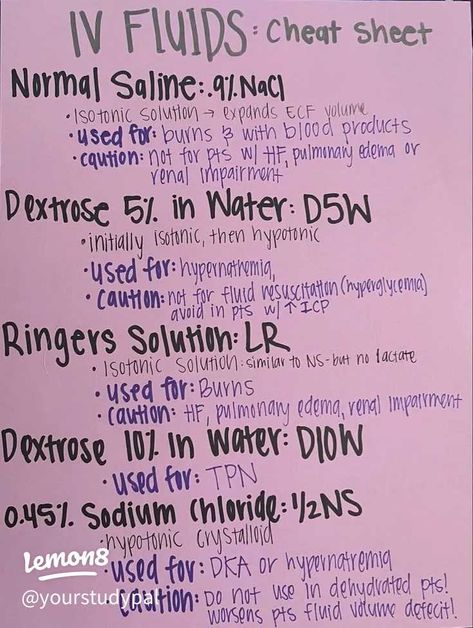 IV FLUIDS: Cheat Sheet
Normal Saline: .9% NaCl
• Isotonic solution → expands ECF volume
• used for: burns & with blood products
• caution: not for pts w/ HF, pulmonary edema or
renal impairment
Dextrose 5% in Water: D5W
• initially isotonic, then hypotonic
• used for: hypernatremia,
• caution: not for fluid resuscitation (hyperglycemia)
avoid in pts w/ ↑ ICP
Ringers Solution: LR
• Isotonic solution: similar to NS-but no lactate
• used for: Burns
• caution: HF, pulmonary edema, renal impairment
Dextrose 10% in Water: D10W
• used for: TPN
0.45% Sodium Chloride: 1/2NS
• hypotonic crystalloid
• used for: DKA or hypernatremia
• caution: Do not use in dehydrated pts!
worsens pts fluid volume defecit!
Lemon8
@yourstudypal